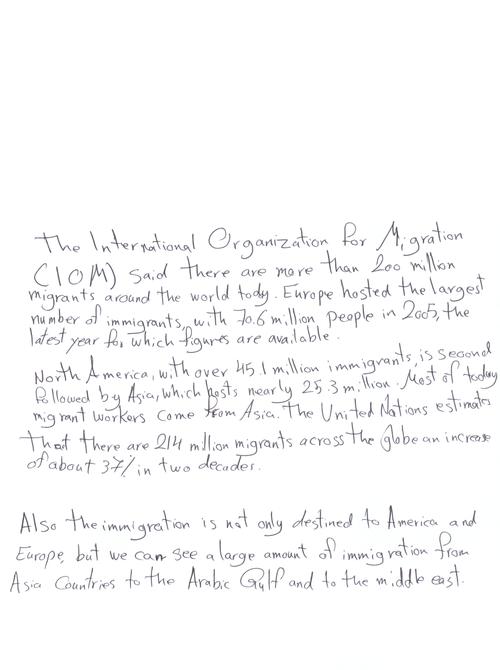 The International Organization for Migration
(IOM) said there are more than 200 million
migrants around the world tody. Europe hosted the largest
number of immigrants, with 70.6 million people in 2005, the
latest year for which figures are available.
North America, with over 45.1 million immigrants, is second
followed by Asia, which hosts nearly 25.3 million. Most of today
migrant workers come from Asia. The United Nations estimates
that there are 214 million migrants across the globe an increase
of about 37% in two decades.
Also the immigration is not only destined to America and
Europe, but we can see a large amount of immigration from
Asia Countries to the Arabic Gulf and to the middle east.